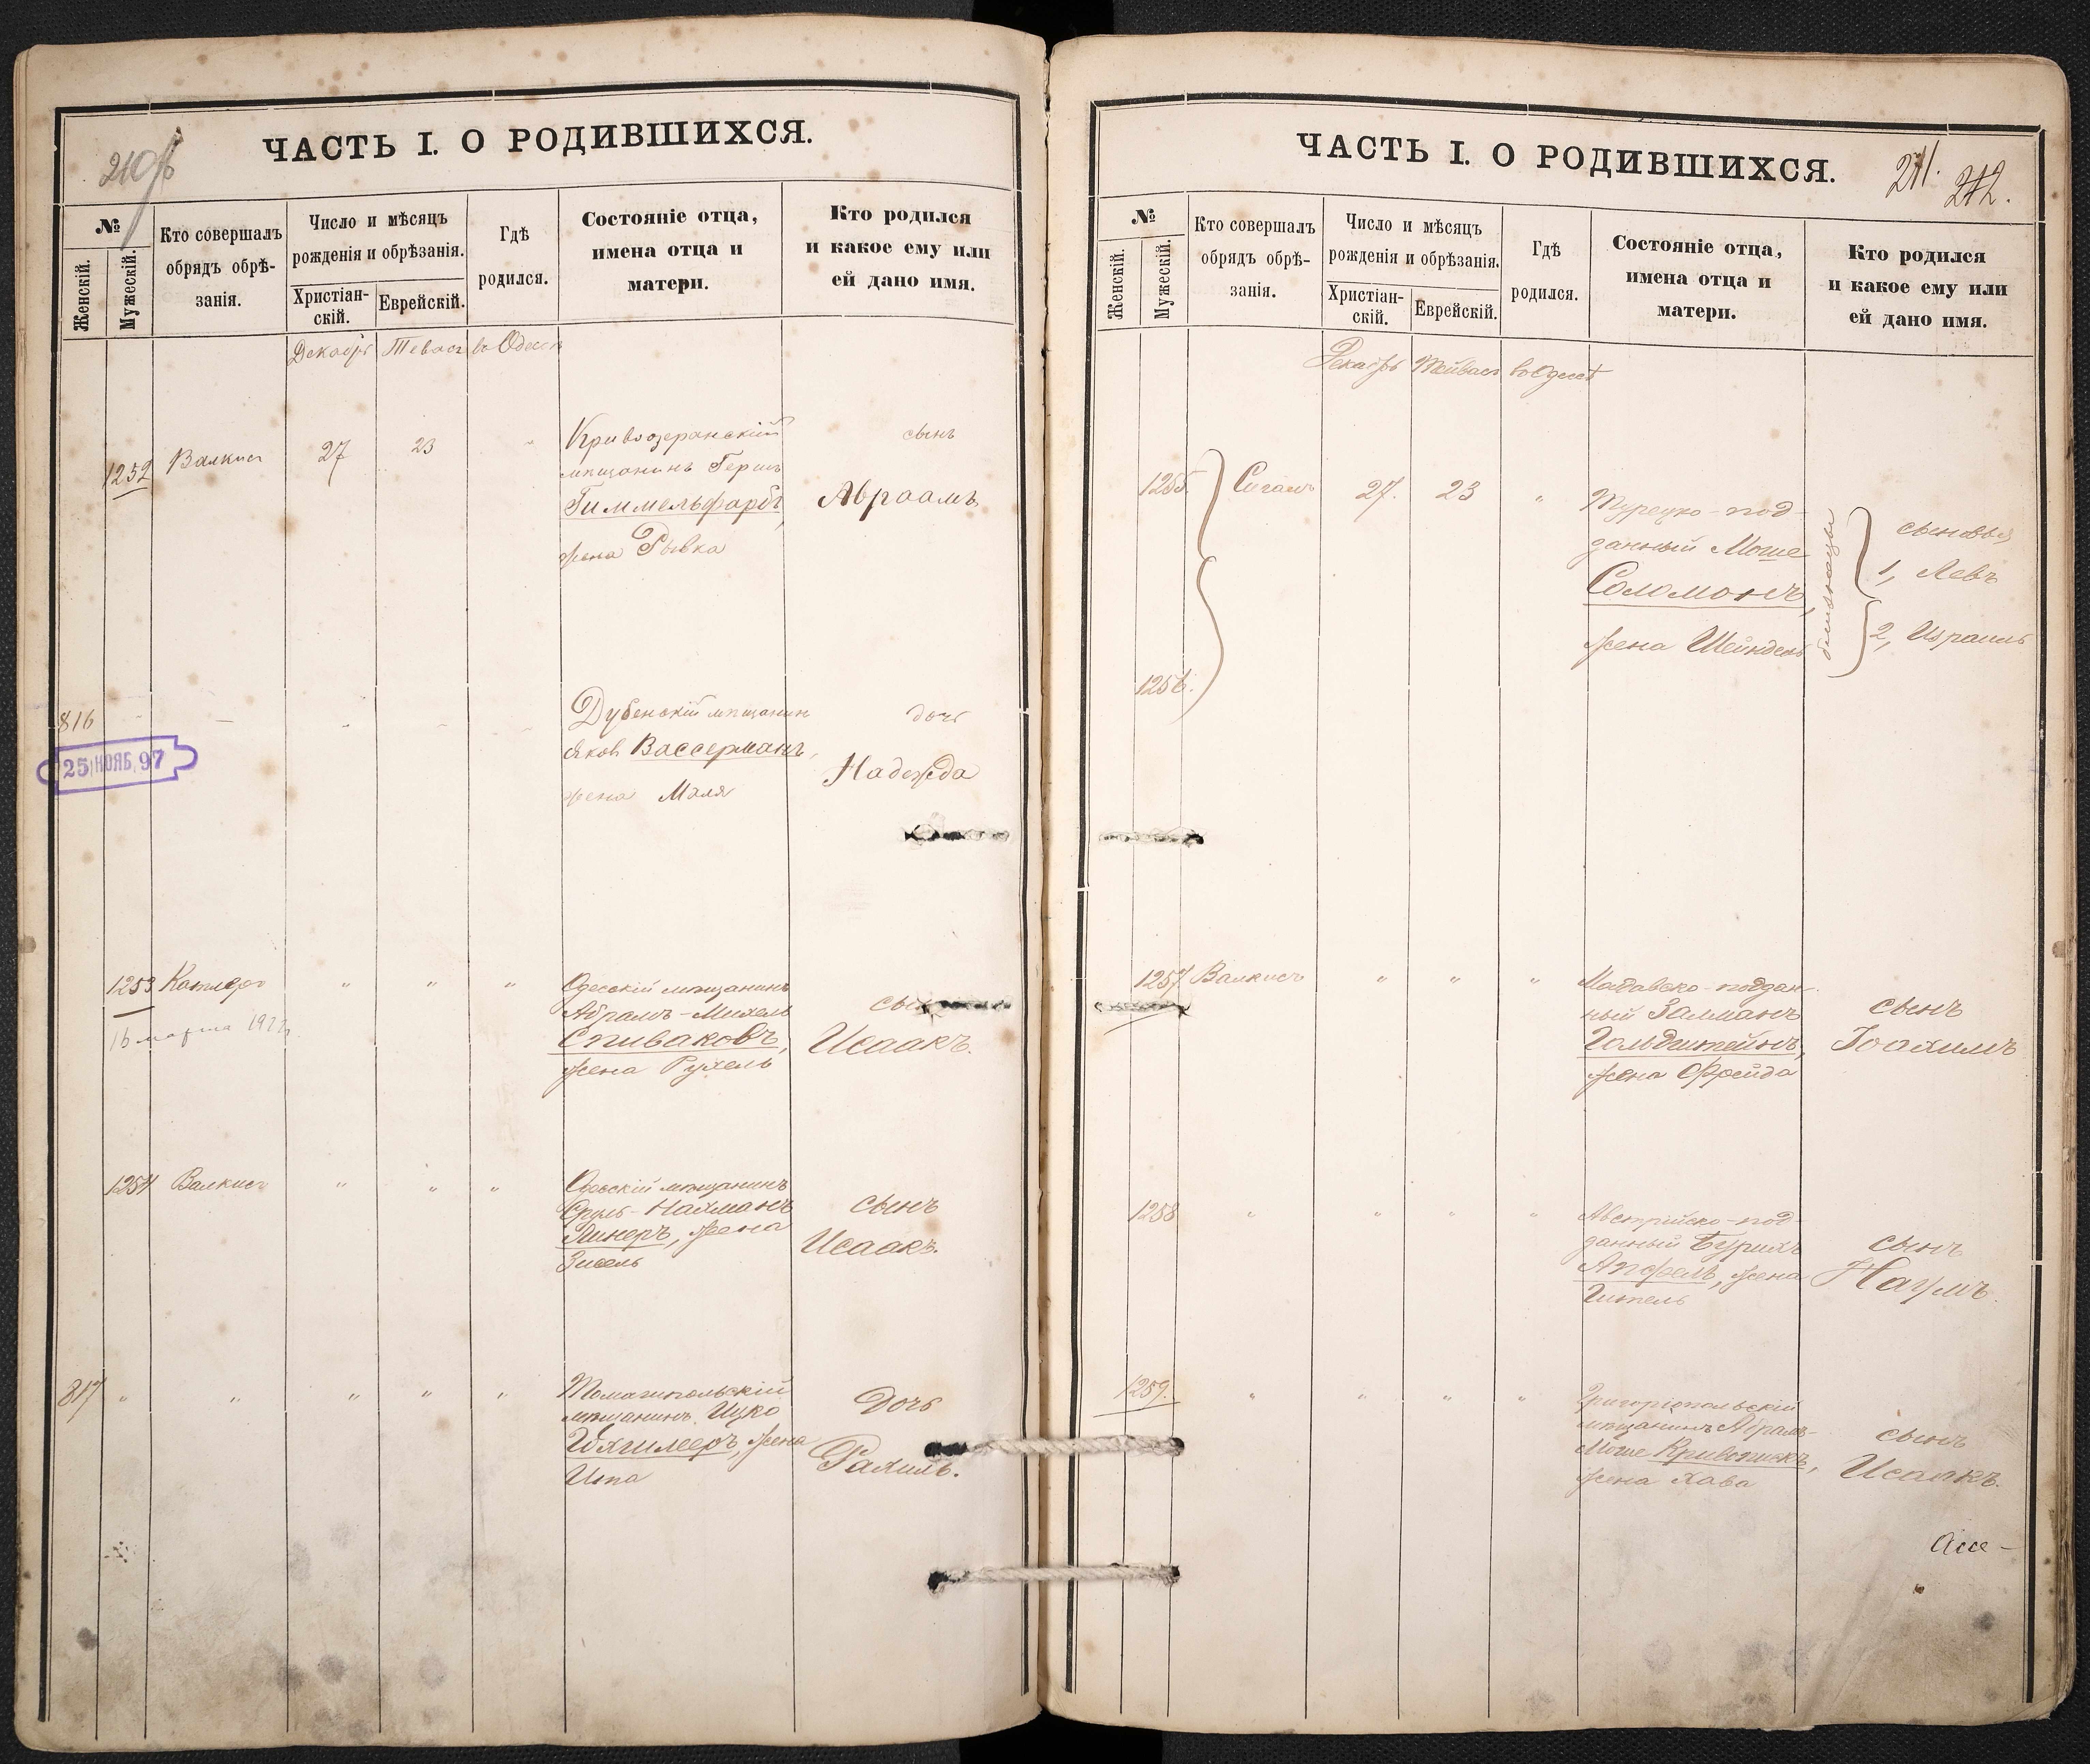 210б
ЧАСТЬ I. О РОДИВШИХСЯ.
№
Женскій.
Мужескій.
Кто совершалъ
обрядъ обрѣ-
занія.
Число и мѣсяцъ
рожденія и обрѣзанія.
Христіан-
скій.
Еврейскій.
Гдѣ
родился.
Состояніе отца,
имена отца и
матери.
Кто родился
и какое ему или
ей дано имя.
Декабрь Тевасъ въ Одессѣ
1252 Валкисъ 27 23 "
Кривоозеранскій
мѣщанинъ Гершъ
Гиммельфарбъ,
жена Рывка
сынъ
Авраамъ
816 - - - -
Дубенскій мѣщанин
Яков Вассерманъ,
жена Маля
дочь
Надежда
25 НОЯБ. 97
1253 " " "
16 марта
Одесскій мѣщанинъ
Абрамъ-Михель
Спиваковъ,
жена Рухель
сынъ
Исаакъ.
1254 Валкисъ " " "
Одесскій мѣщанинъ
Сруль-Нахманъ
жена
Зисель
сынъ
Исаакъ.
817 " " " " "
мѣщанинъ Ицко
жена
Ита
Дочь
Рахиль.
ЧАСТЬ I. О РОДИВШИХСЯ.
211. 212.
№
Женскій.
Мужескій.
Кто совершалъ
обрядъ обрѣ-
занія.
Число и мѣсяцъ
рожденія и обрѣзанія.
Христіан-
скій.
Еврейскій.
Гдѣ
родился.
Состояніе отца,
имена отца и
матери.
Кто родился
и какое ему или
ей дано имя.
Декабрь Тейвасъ въ Одессѣ
1255. Сигалъ 27. 23 "
1256.
Турецко-под-
данный Моше
Соломонъ,
жена Шейндель
близнецы
сыновья
1, Левъ
2, Израиль
1257 Валкисъ " " "
поддан-
ный Залманъ
Гольдштейнъ,
жена Фрейда
сынъ
Іоахимъ
1258 " " " "
Австрійско-под-
данный Бурихъ
Апфель, жена
Гитель
сынъ
Наумъ.
1259. " " " "
Григоріопольскій
мѣщанинъ Абрамъ-
Моше
жена Хава
сынъ
Исаакъ.